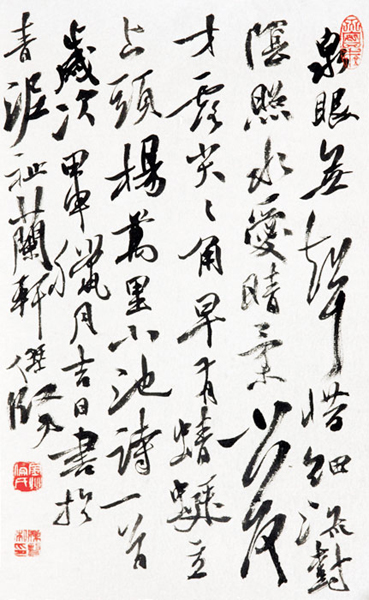 泉眼無聲惜細流樹
陰照水愛晴柔小荷
才露尖々角早有蜻蜓立
上頭楊萬里小池詩一首
歲次甲申臘月吉日書於
青泥蘭軒